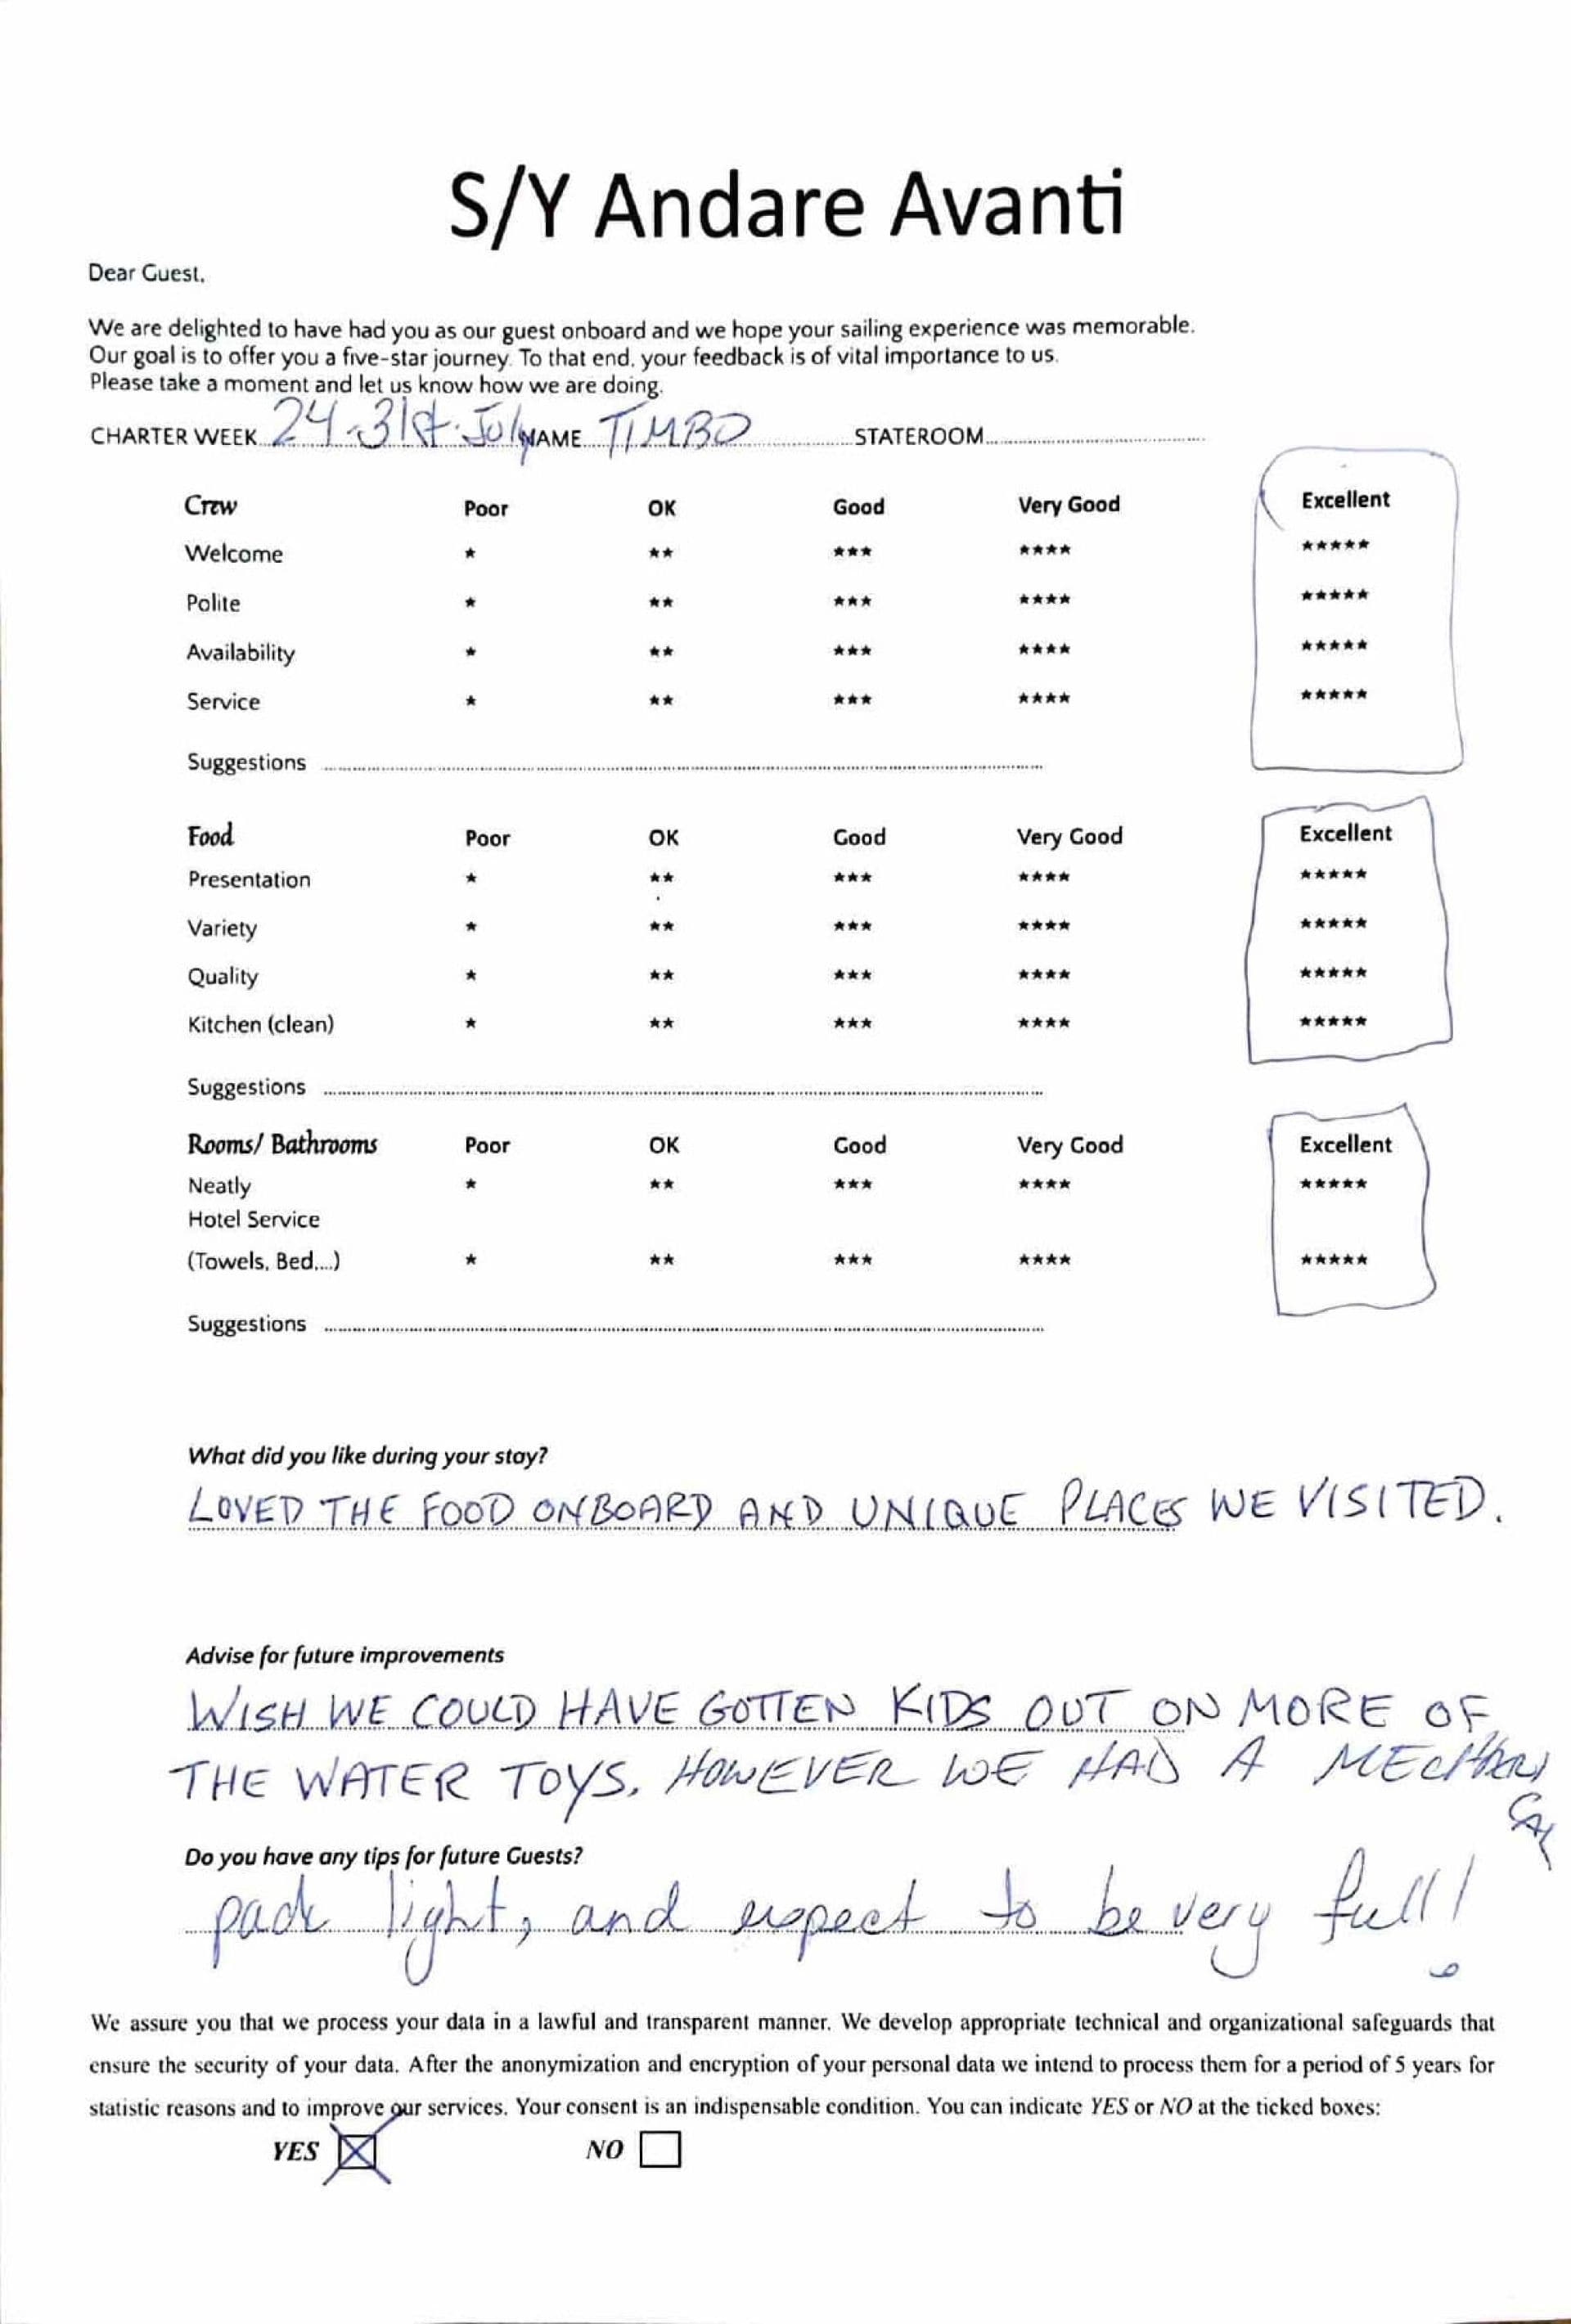 S/Y Andare Avanti
Dear Guest,
We are delighted to have had you as our guest onboard and we hope your sailing experience was memorable.
Our goal is to offer you a five-star journey. To that end, your feedback is of vital importance to us.
Please take a moment and let us know how we are doing.
CHARTER WEEK 24-31st July NAME TIMBO STATEROOM
Crew Poor OK Good Very Good Excellent
Welcome * ** *** **** *****
Polite * ** *** **** *****
Availability * ** *** **** *****
Service * ** *** **** *****
Suggestions
Food Poor OK Good Very Good Excellent
Presentation * ** *** **** *****
Variety * ** *** **** *****
Quality * ** *** **** *****
Kitchen (clean) * ** *** **** *****
Suggestions
Rooms/ Bathrooms Poor OK Good Very Good Excellent
Neatly * ** *** **** *****
Hotel Service
(Towels, Bed,...) * ** *** **** *****
Suggestions
What did you like during your stay?
LOVED THE FOOD ONBOARD AND UNIQUE PLACES WE VISITED.
Advise for future improvements
WISH WE COULD HAVE GOTTEN KIDS OUT ON MORE OF
THE WATER TOYS. HOWEVER WE HAD A
Do you have any tips for future Guests?
pack light, and expect to be very full!
We assure you that we process your data in a lawful and transparent manner. We develop appropriate technical and organizational safeguards that
ensure the security of your data. After the anonymization and encryption of your personal data we intend to process them for a period of 5 years for
statistic reasons and to improve our services. Your consent is an indispensable condition. You can indicate YES or NO at the ticked boxes:
YES NO